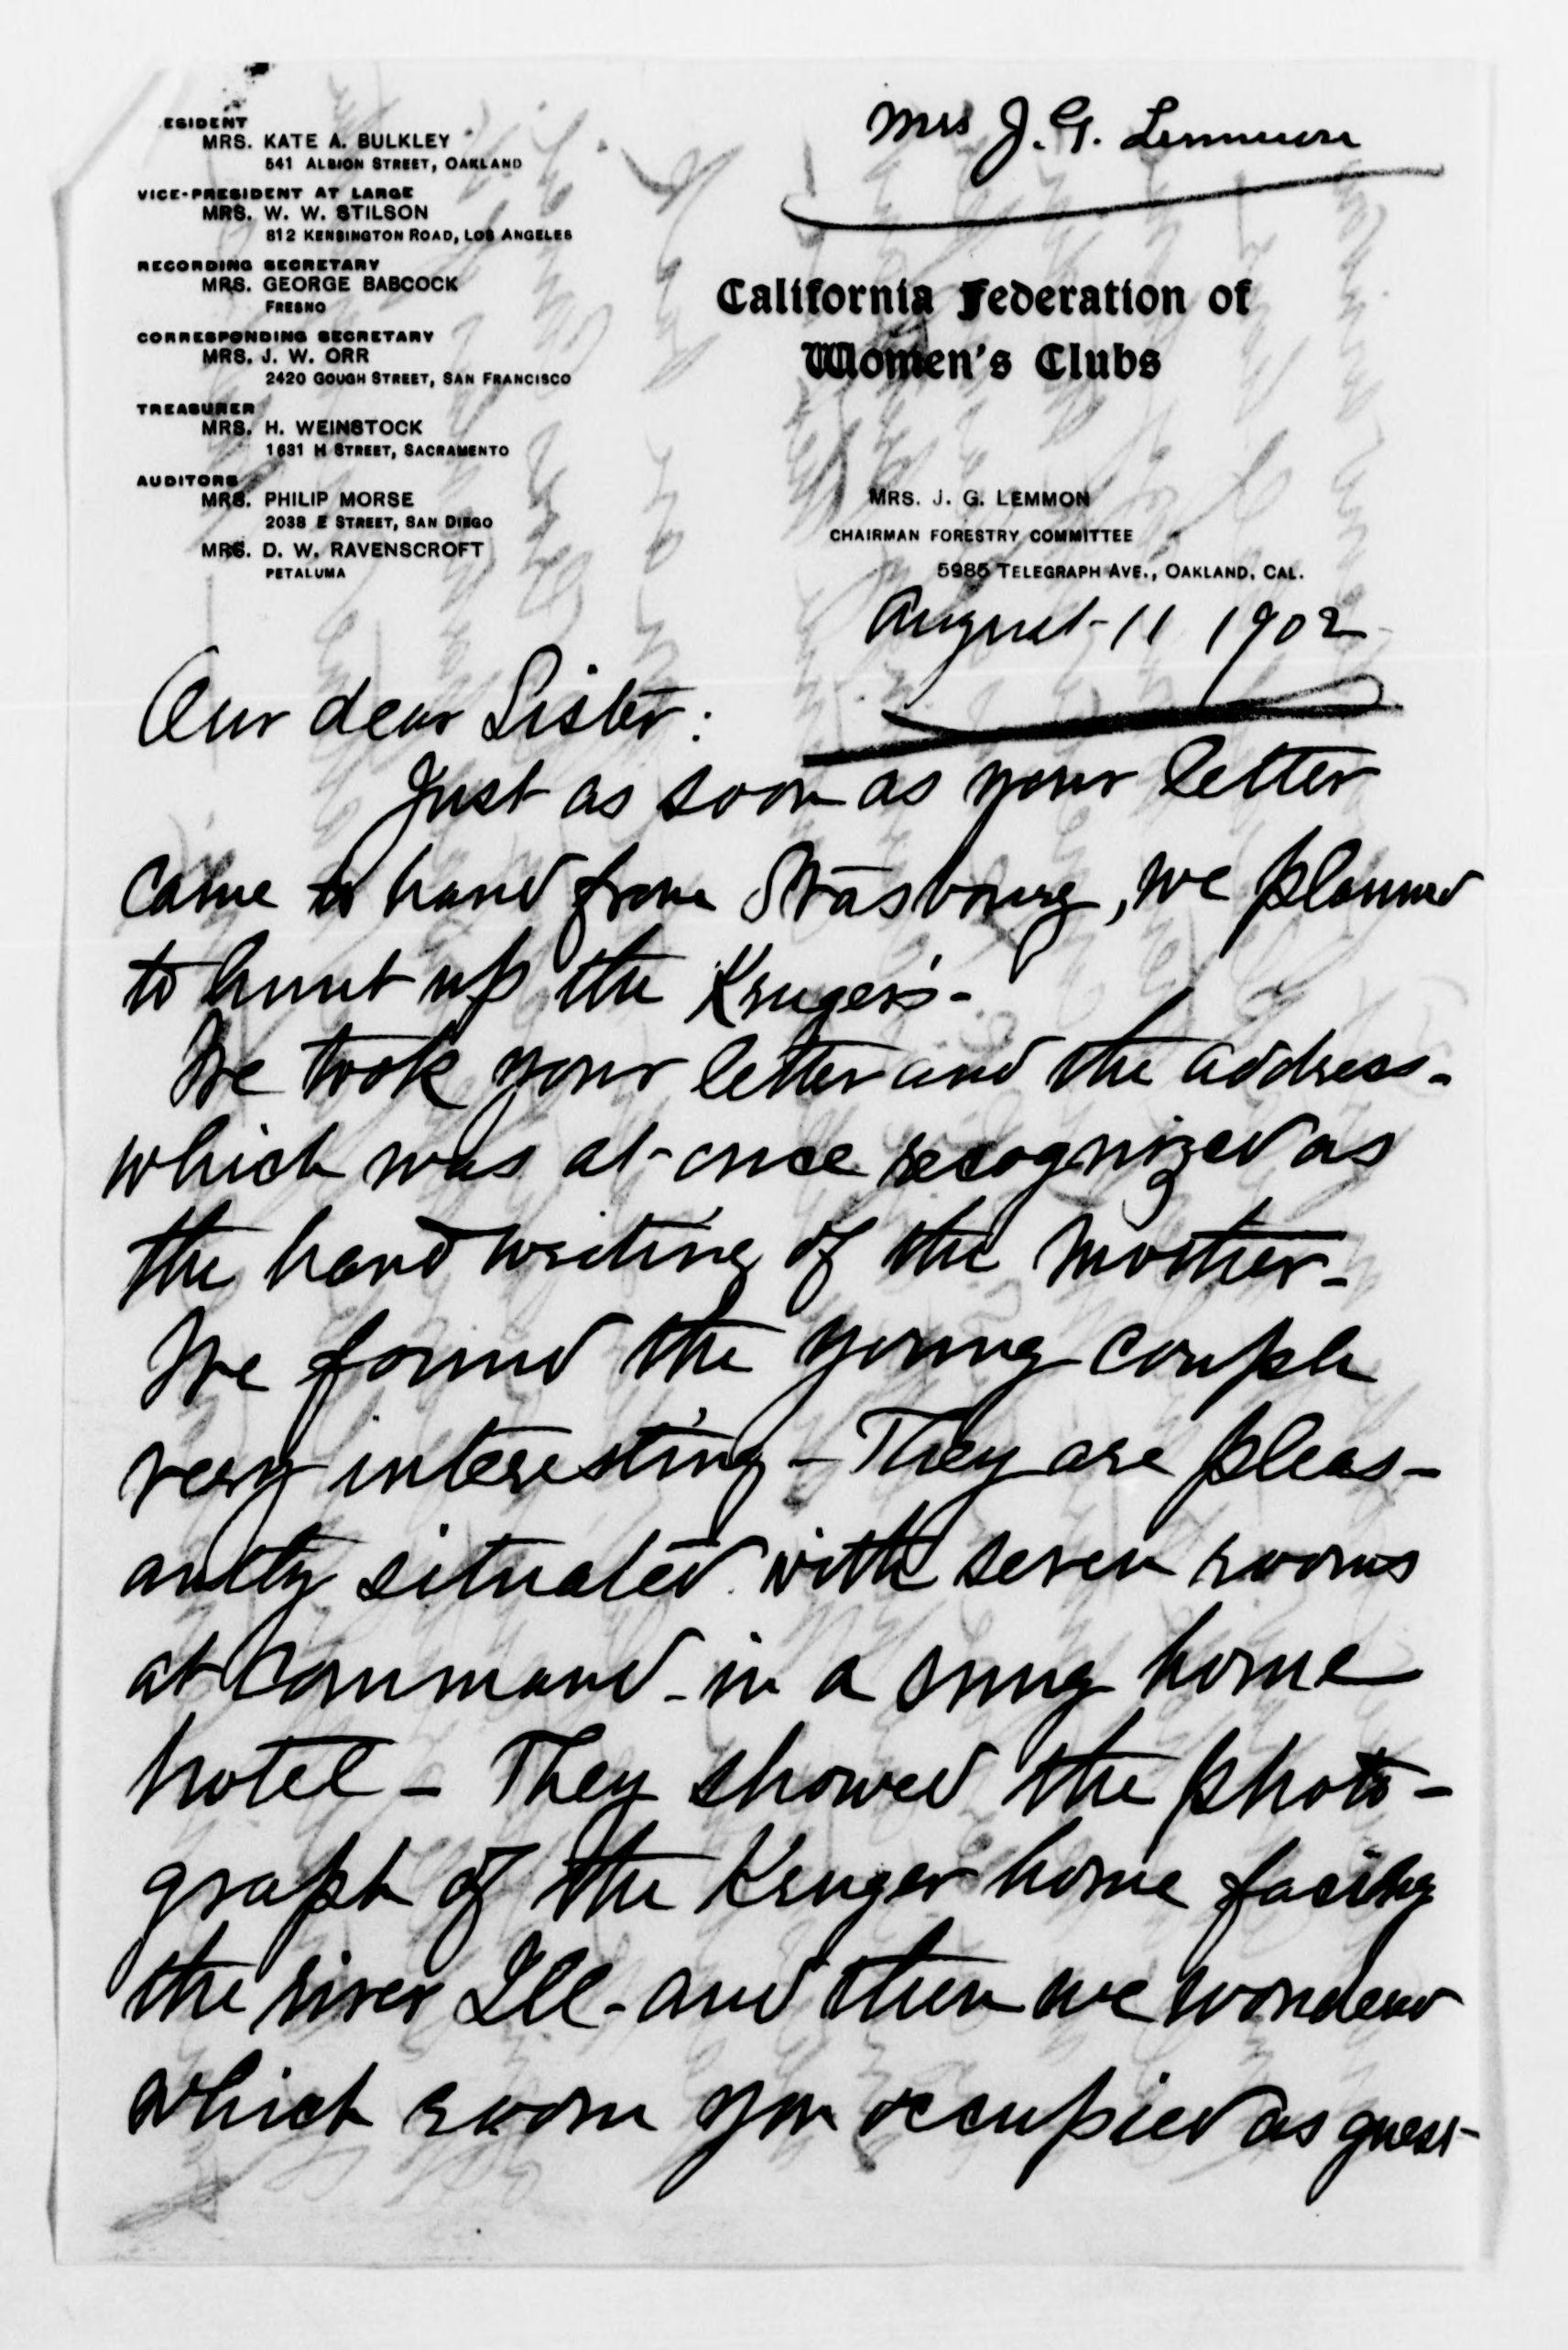 ESIDENT
MRS. KATE A. BULKLEY
541 ALBION STREET, OAKLAND
VICE-PRESIDENT AT LARGE
MRS. W. W. STILSON
812 KENSINGTON ROAD, LOS ANGELES
RECORDING SECRETARY
MRS. GEORGE BABCOCK
FRESNO
CORRESPONDING SECRETARY
MRS. J. W. ORR
2420 GOUGH STREET, SAN FRANCISCO
TREASURER
MRS. H. WEINSTOCK
1631 H STREET, SACRAMENTO
AUDITORS
MRS. PHILIP MORSE
2038 E STREET, SAN DIEGO
MRS. D. W. RAVENSCROFT
PETALUMA
Mrs J. G. Lemmon
California Federation of
Women's Clubs
MRS. J. G. LEMMON
CHAIRMAN FORESTRY COMMITTEE
5985 TELEGRAPH AVE., OAKLAND, CAL.
August 11 1902
Our dear Sister:
Just as soon as your letter
came to hand from Strasbourg, we planned
to hunt up the Krugers-
We took your letter and the address-
which was at once recognized as
the handwriting of the Mother-
We found the young couple
very interesting - They are pleas-
antly situated with seven rooms
at command - in a snug home
hotel - They showed the photo-
graph of the Kruger home facing
the river Ill - and then we wondered
which room you occupied as guest-